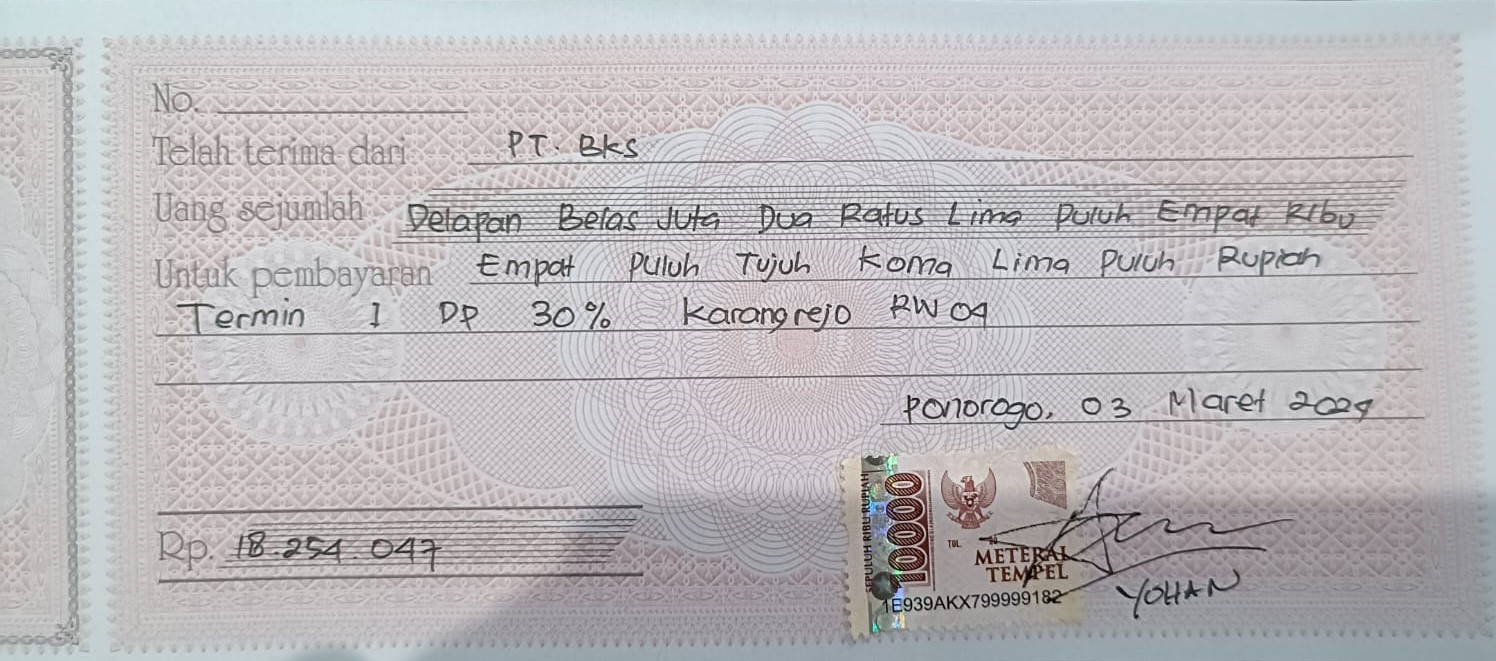 No.
Telah terima dari PT. BKS
Uang sejumlah Delapan Belas Juta Dua Ratus Lima Puluh Empat Ribu
Untuk pembayaran Empat Puluh Tujuh Koma Lima Puluh Rupiah
Termin I DP 30% Karangrejo RW 04
Ponorogo, 03 Maret 2024
Rp. 18.254.047
SEPULUH RIBU RUPIAH
10000
TGL. 20
METERAI
TEMPEL
1E939AKX799999182
YOHAN